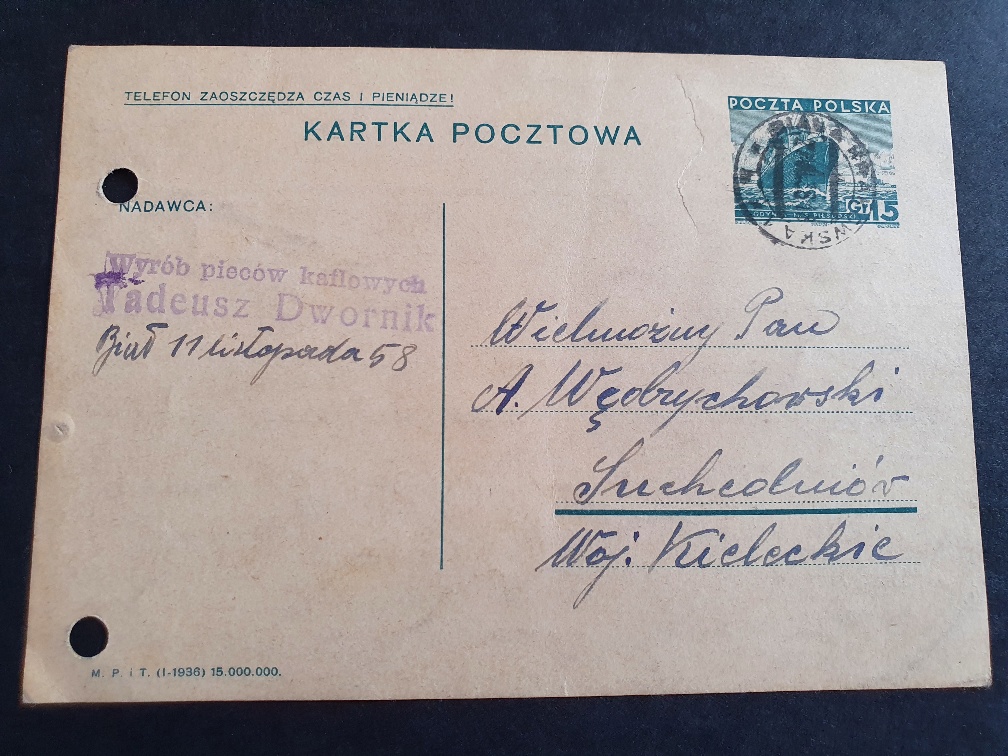 TELEFON ZAOSZCZĘDZA CZAS I PIENIĄDZE!
KARTKA POCZTOWA
POCZTA POLSKA
Gr 15
GDYNIA - M/S PIŁSUDSKI
NADAWCA:
Wyrób pieców kaflowych
Tadeusz Dwornik
Biał 11 listopada 58
Wielmożny Pan
A. Wędrychowski
Suchedniów
Woj. Kieleckie
M. P. i T. (I-1936) 15.000.000.